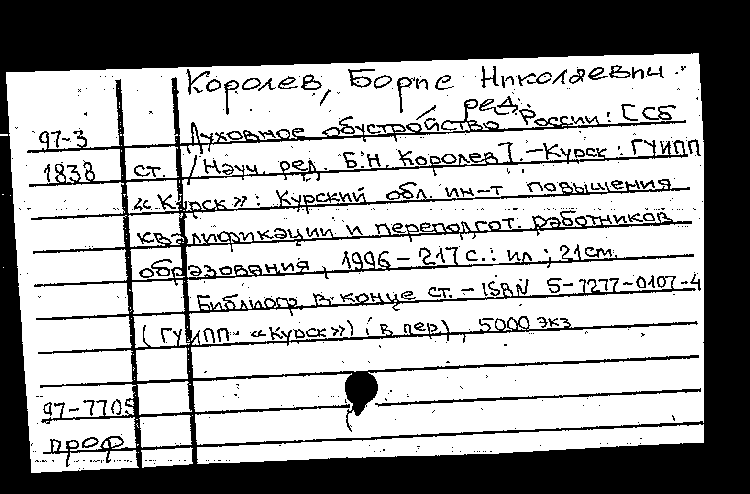 Королев, Борис Николаевич.
ред.
97-3 Духовное обустройство России: [Сб
1838 ст. / Науч. ред. Б.Н. Королев]. - Курск : ГУИПП
«Курск»: Курский обл. ин-т повышения
квалификации и переподгот. работников
образования, 1996 - 217 с. : ил ; 21 cm.
Библиогр. в конце ст. - ISBN 5-7277-0107-4
(ГУИПП «Курск») (в пер), 5000 экз
97-7705
проф